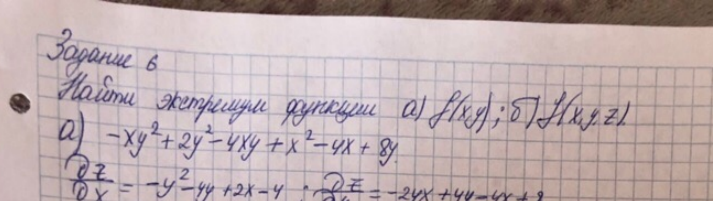 Задание 6
Найти экстремум функции а) f(x,y); б) f(x,y,z).
а) -xy²+2y²-4xy+x²-4x+8y.
∂z/∂x = -y²-4y+2x-4 ; ∂z = -2yx+4y-4x+8